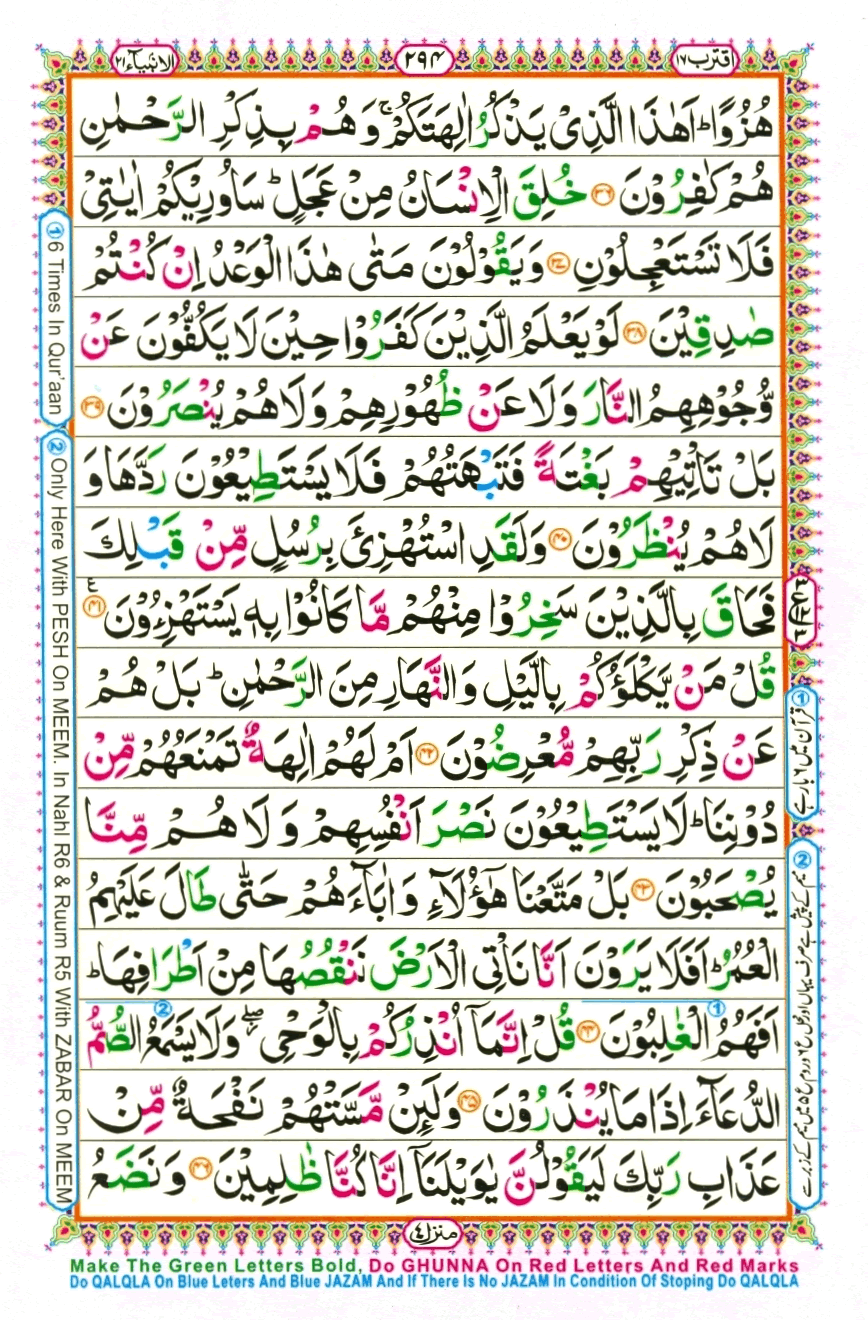 اقترب ۱۷
۲۹۴
الانبیآء ۲۱
هُزُوًا ؕ اَهٰذَا الَّذِیْ یَذْكُرُ اٰلِهَتَكُمْ ۚ وَ هُمْ بِذِكْرِ الرَّحْمٰنِ
هُمْ كٰفِرُوْنَ ۳۶ خُلِقَ الْاِنْسَانُ مِنْ عَجَلٍ ؕ سَاُورِیْكُمْ اٰیٰتِیْ
فَلَا تَسْتَعْجِلُوْنِ ۳۷ وَیَقُوْلُوْنَ مَتٰی هٰذَا الْوَعْدُ اِنْ كُنْتُمْ
صٰدِقِیْنَ ۳۸ لَوْ یَعْلَمُ الَّذِیْنَ كَفَرُوْا حِیْنَ لَا یَكُفُّوْنَ عَنْ
وُّجُوْهِهِمُ النَّارَ وَلَا عَنْ ظُهُوْرِهِمْ وَلَا هُمْ یُنْصَرُوْنَ ۳۹
بَلْ تَاْتِیْهِمْ بَغْتَةً فَتَبْهَتُهُمْ فَلَا یَسْتَطِیْعُوْنَ رَدَّهَا وَ
لَا هُمْ یُنْظَرُوْنَ ۴۰ وَلَقَدِ اسْتُهْزِئَ بِرُسُلٍ مِّنْ قَبْلِكَ
فَحَاقَ بِالَّذِیْنَ سَخِرُوْا مِنْهُمْ مَّا كَانُوْا بِهٖ یَسْتَهْزِءُوْنَ ۴۱
قُلْ مَنْ یَّكْلَؤُكُمْ بِالَّیْلِ وَالنَّهَارِ مِنَ الرَّحْمٰنِ ؕ بَلْ هُمْ
عَنْ ذِكْرِ رَبِّهِمْ مُّعْرِضُوْنَ ۴۲ اَمْ لَهُمْ اٰلِهَةٌ تَمْنَعُهُمْ مِّنْ
دُوْنِنَا ؕ لَا یَسْتَطِیْعُوْنَ نَصْرَ اَنْفُسِهِمْ وَ لَا هُمْ مِّنَّا
یُصْحَبُوْنَ ۴۳ بَلْ مَتَّعْنَا هٰۤؤُلَآءِ وَ اٰبَآءَهُمْ حَتّٰی طَالَ عَلَیْهِمُ
الْعُمُرُ ؕ اَفَلَا یَرَوْنَ اَنَّا نَاْتِی الْاَرْضَ نَنْقُصُهَا مِنْ اَطْرَافِهَا ؕ
اَفَهُمُ الْغٰلِبُوْنَ ۴۴ قُلْ اِنَّمَاۤ اُنْذِرُكُمْ بِالْوَحْیِ ۖ وَلَا یَسْمَعُ الصُّمُّ
الدُّعَآءَ اِذَا مَا یُنْذَرُوْنَ ۴۵ وَلَئِنْ مَّسَّتْهُمْ نَفْحَةٌ مِّنْ
عَذَابِ رَبِّكَ لَیَقُوْلُنَّ یٰوَیْلَنَاۤ اِنَّا كُنَّا ظٰلِمِیْنَ ۴۶ وَ نَضَعُ
منزل ۴
① 6 Times In Qur'aan
② Only Here With PESH On MEEM. In Nahl R6 & Ruum R5 With ZABAR On MEEM
① قرآن میں ۶ بار ہے
Make The Green Letters Bold, Do GHUNNA On Red Letters And Red Marks
Do QALQLA On Blue Leters And Blue JAZAM And If There Is No JAZAM In Condition Of Stoping Do QALQLA